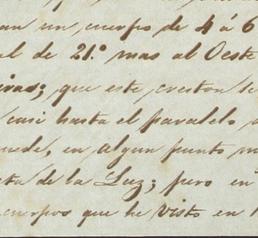 an un cuerpo de 4 á 6
al de 21.° mas al Oeste
que este creston se
casi hasta el paralelo
uede, en algun punto
ta de la Luz; pero en
cuerpos que he visto en